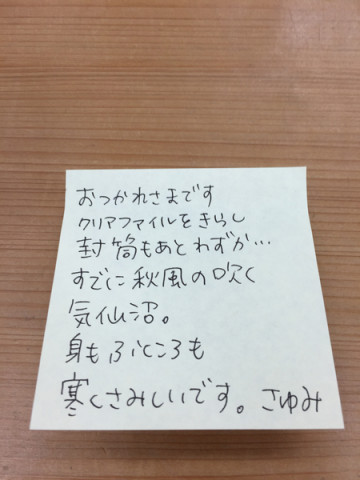 おつかれさまです
クリアファイルをきらし
封筒もあとわずか…
すでに秋風の吹く
気仙沼。
身もふところも
寒くさみしいです。さゆみ